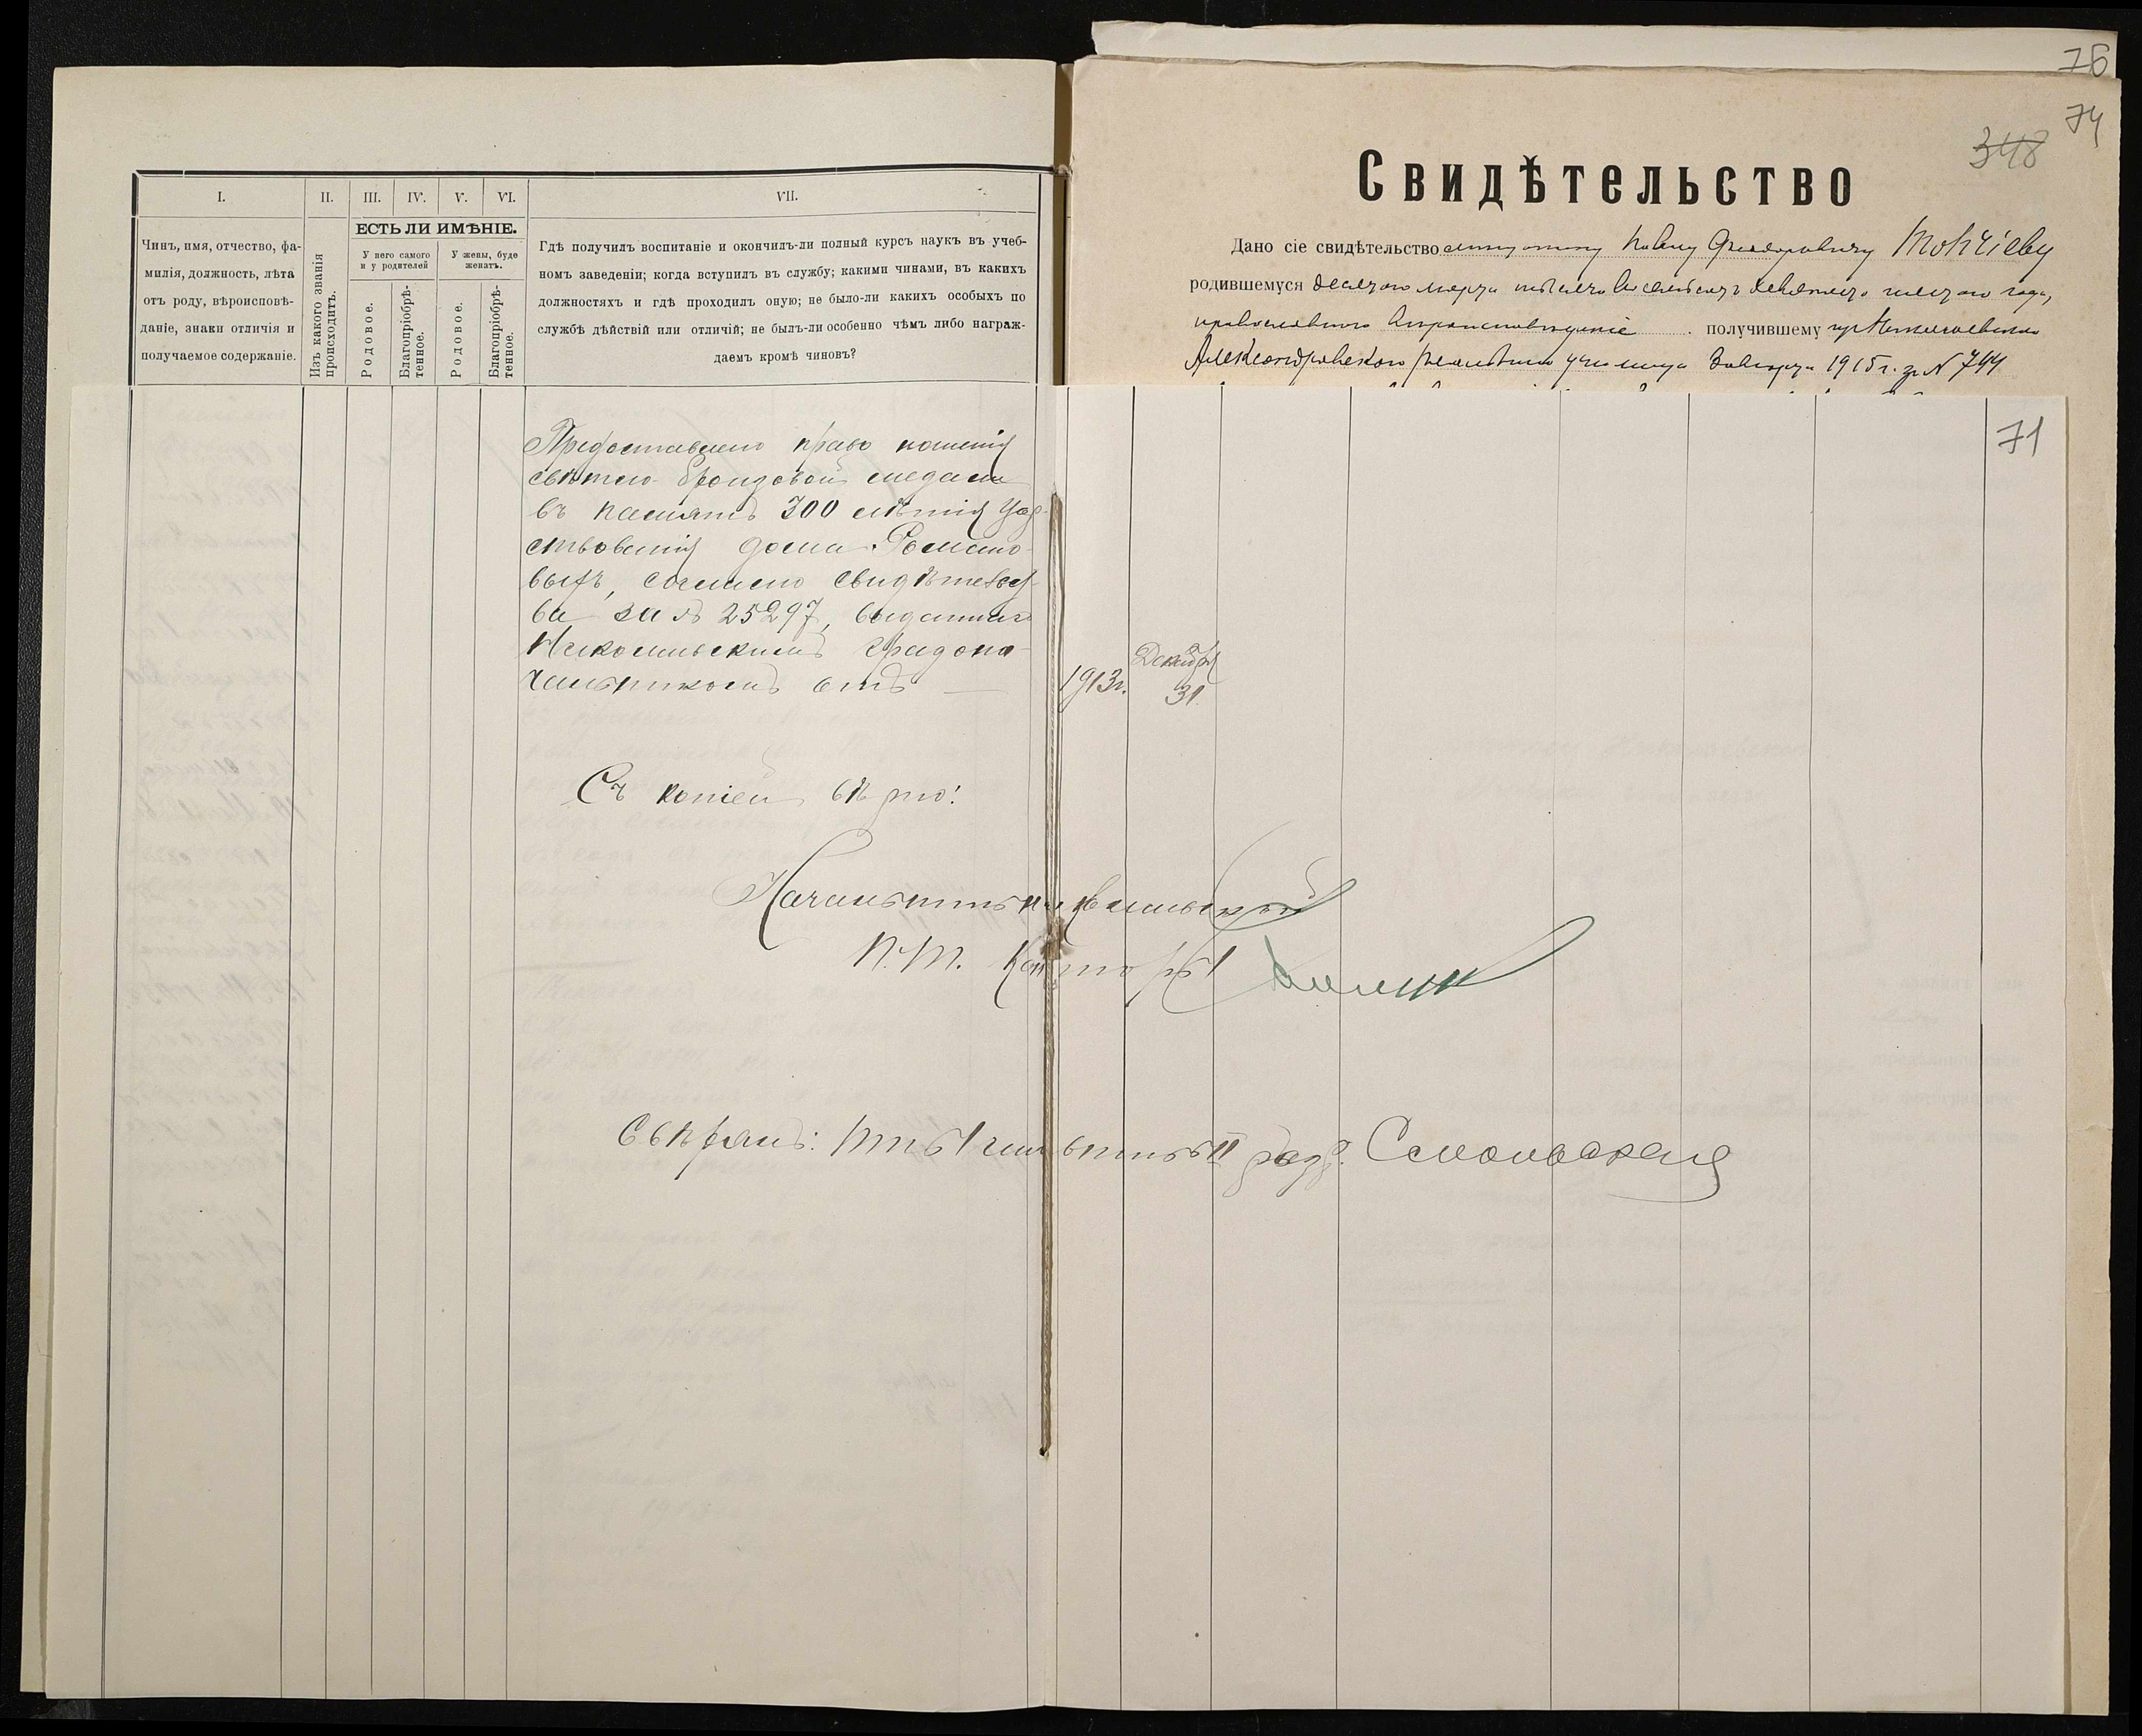 I.
II.
III.
IV.
V.
VI.
VII.
ЕСТЬ ЛИ ИМѢНІЕ.
Чинъ, имя, отчество, фа-
милія, должность, лѣта
отъ роду, вѣроисповѣ-
даніе, знаки отличія и
получаемое содержаніе.
Изъ какого званія
происходитъ.
У него самого
и у родителей
У жены, буде
женатъ.
Родовое.
Благопріобрѣ-
тенное.
Родовое.
Благопріобрѣ-
тенное.
Гдѣ получилъ воспитаніе и окончилъ-ли полный курсъ наукъ въ учеб-
номъ заведеніи; когда вступилъ въ службу; какими чинами, въ какихъ
должностяхъ и гдѣ проходилъ оную; не было-ли какихъ особыхъ по
службѣ дѣйствій или отличій; не былъ-ли особенно чѣмъ либо награж-
даемъ кромѣ чиновъ?
Предоставлено право ношенія
свѣтло-бронзовой медали
въ память 300 лѣтія Цар-
ствованія дома Романо-
выхъ, согласно свидѣтельст-
ва за № 25297, выданнаго
Николаевскимъ Градона-
чальникомъ отъ
1913г.
Декабря
31.
Съ копіей вѣрно:
Начальникъ Николаевской
П.Т. Конторы
Свѣрялъ: разр.
76
74
348
Свидѣтельство
Дано сіе свидѣтельство Павлу Федоровичу Мокріеву
родившемуся десятаго марта тысяча восемьсотъ девяносто года,
православнаго вѣроисповѣданія получившему изъ Николаевскаго
Александровскаго реальнаго училища 1915 г. за № 744
71